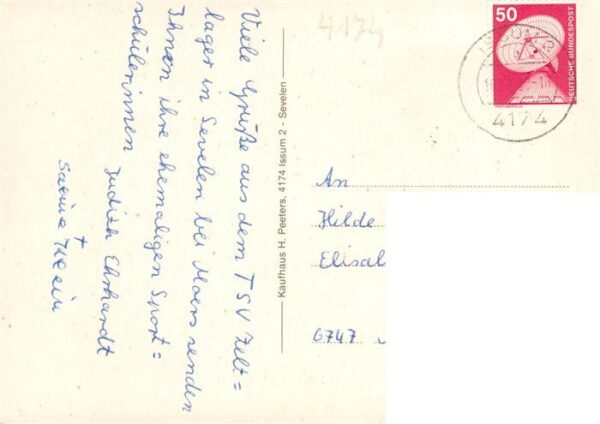 Viele Grüße aus dem TSV Zelt=
lager in Sevelen bei Moers senden
Ihnen ihre ehemaligen Sport=
schülerinnen
Judith Ehrhardt
+
Sabine
Kaufhaus H. Peeters, 4174 Issum 2 - Sevelen
4174
50
DEUTSCHE BUNDESPOST
ISSUM 2
4174
An
Hilde
Elisab
6747